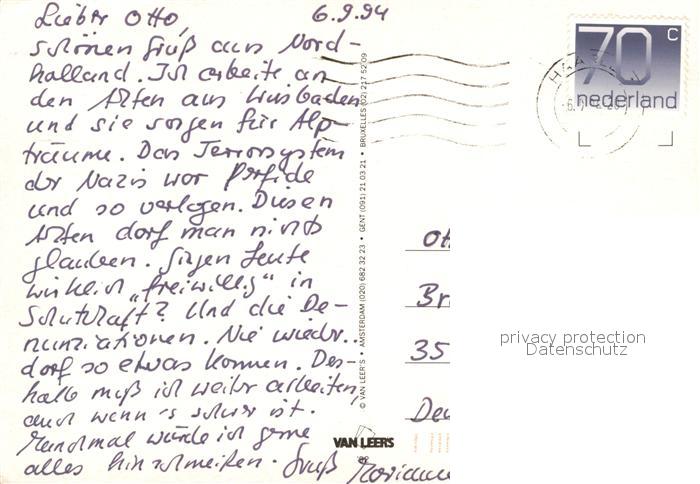 Lieber Otto, 6.9.94
schönen Gruß aus Nord-
holland. Ich arbeite an
den Akten aus Wiesbaden
und sie sorgen für Alp-
träume. Das Terrorsystem
der Nazis war perfide
und so verlogen. Diesen
Akten darf man nichts
glauben. Gingen Leute
wirklich „freiwillig" in
Schutzhaft? Und die De-
nunziationen. Nie wieder
darf so etwas kommen. Des-
halb muß ich weiter arbeiten,
auch wenn's schwer ist.
Manchmal würde ich gerne
alles hinschmeißen. Gruß Marianne
© VAN LEER'S • AMSTERDAM (020) 682 32 23 • GENT (091) 21.03.21 • BRUXELLES (02) 217 52 09
VAN LEERS
70 c
nederland
Ott
Br
35
Deu
privacy protection
Datenschutz